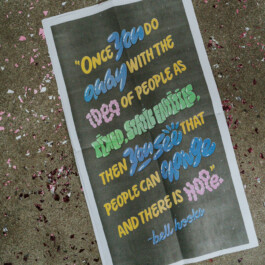 "Once You do
away with the
idea of people as
fixed, static entities,
then You see that
people can change
and there is hope."
-bell hooks